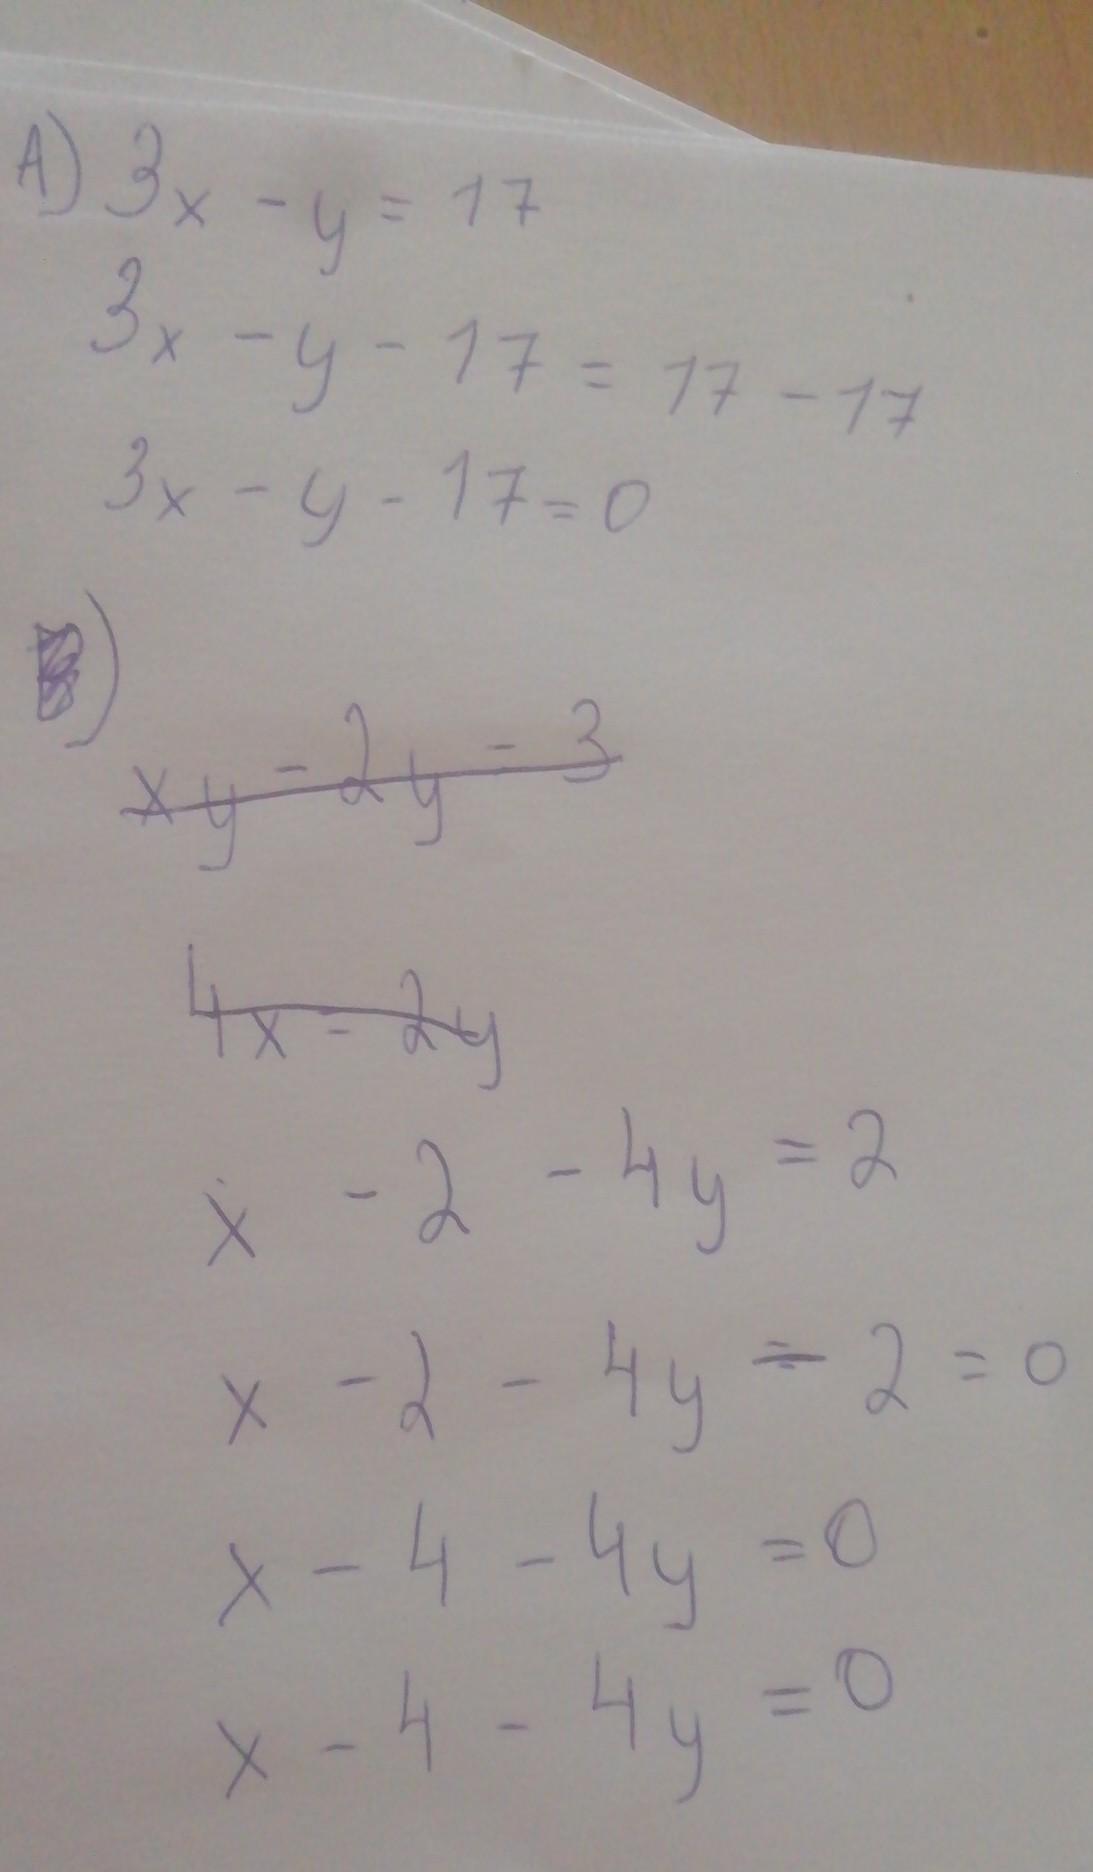 A) 3x - y = 17
3x - y - 17 = 17 - 17
3x - y - 17 = 0
B)
xy - 2y - 3
4x - 2y
x - 2 - 4y = 2
x - 2 - 4y - 2 = 0
x - 4 - 4y = 0
x - 4 - 4y = 0